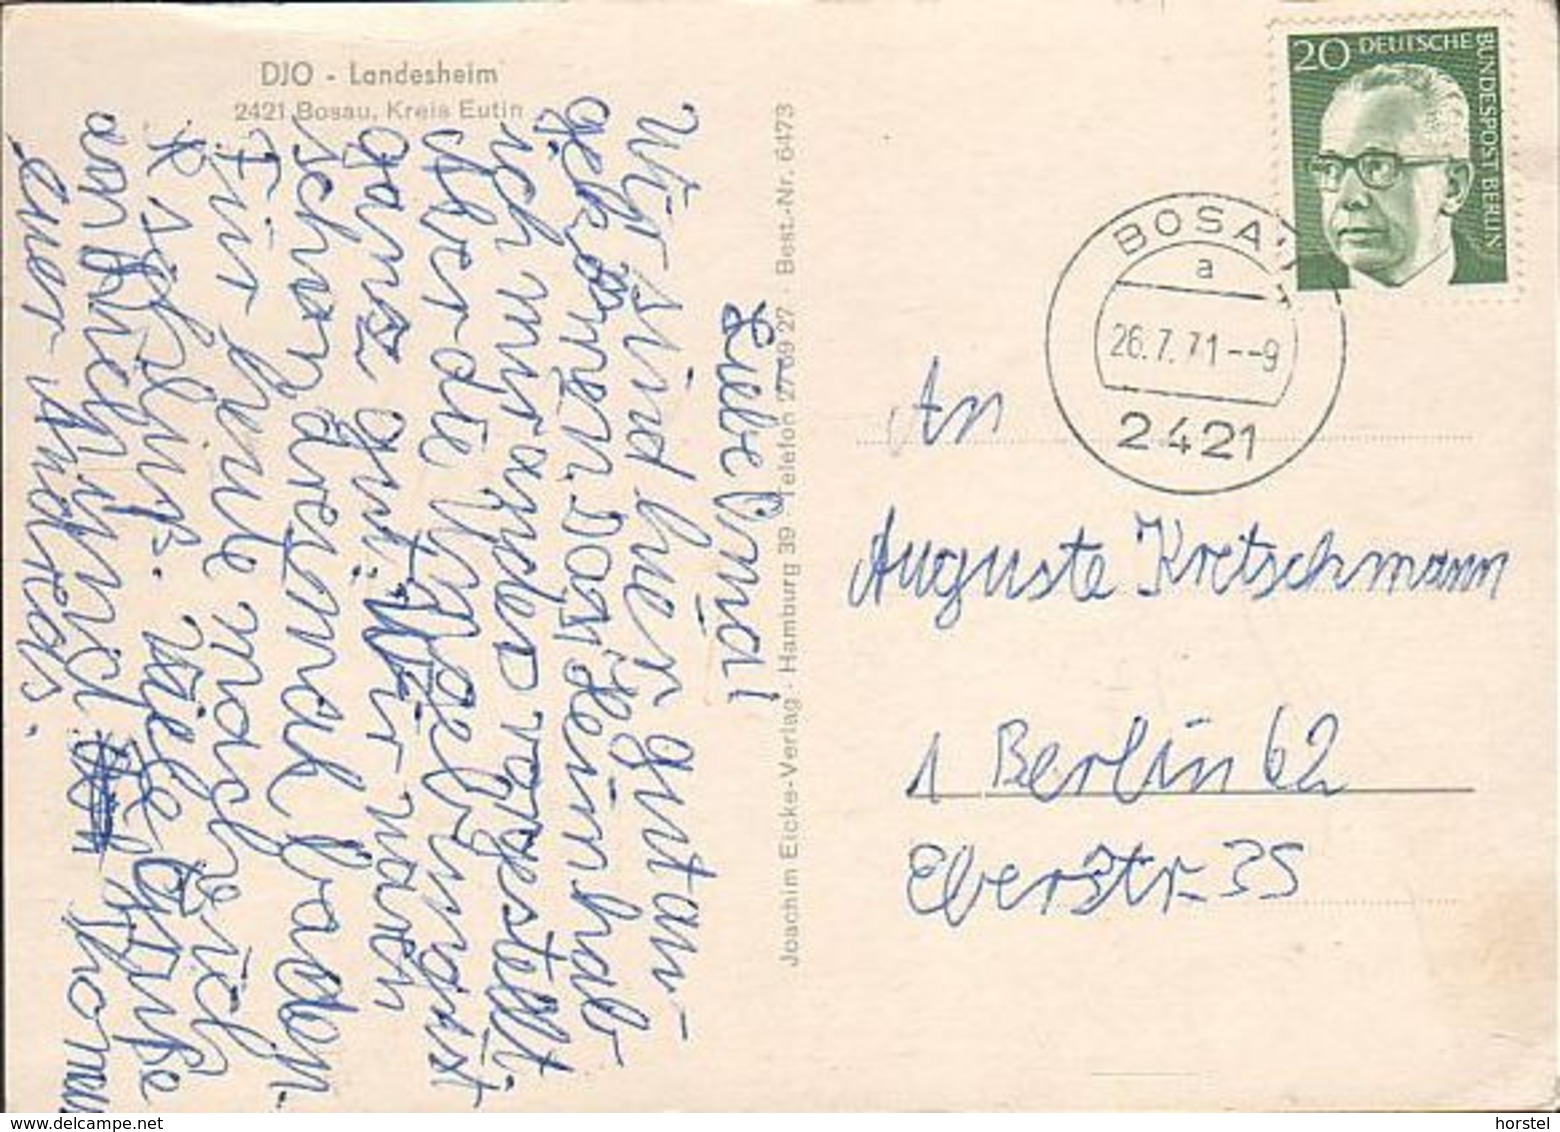 DJO - Landesheim
2421 Bosau, Kreis Eutin
Liebe Omia!
Wir sind hier gut an-
gekomen. Das Heim hab
ich mir anders vorgestellt.
Aber die Umgebung ist
ganz gut. Wir waren
schon dreimal baden.
Für heute mach ich
Schluß. Viele Grüße
an
euer Andreas.
Thomas
Joachim Eicke-Verlag · Hamburg 39 · Telefon 27 69 27 · Best.-Nr. 6473
20 DEUTSCHE BUNDESPOST BERLIN
BOSAU
a
26.7.71--9
2421
An
Auguste Kretschmann
1 Berlin 62
Eberstr. 35
horstel